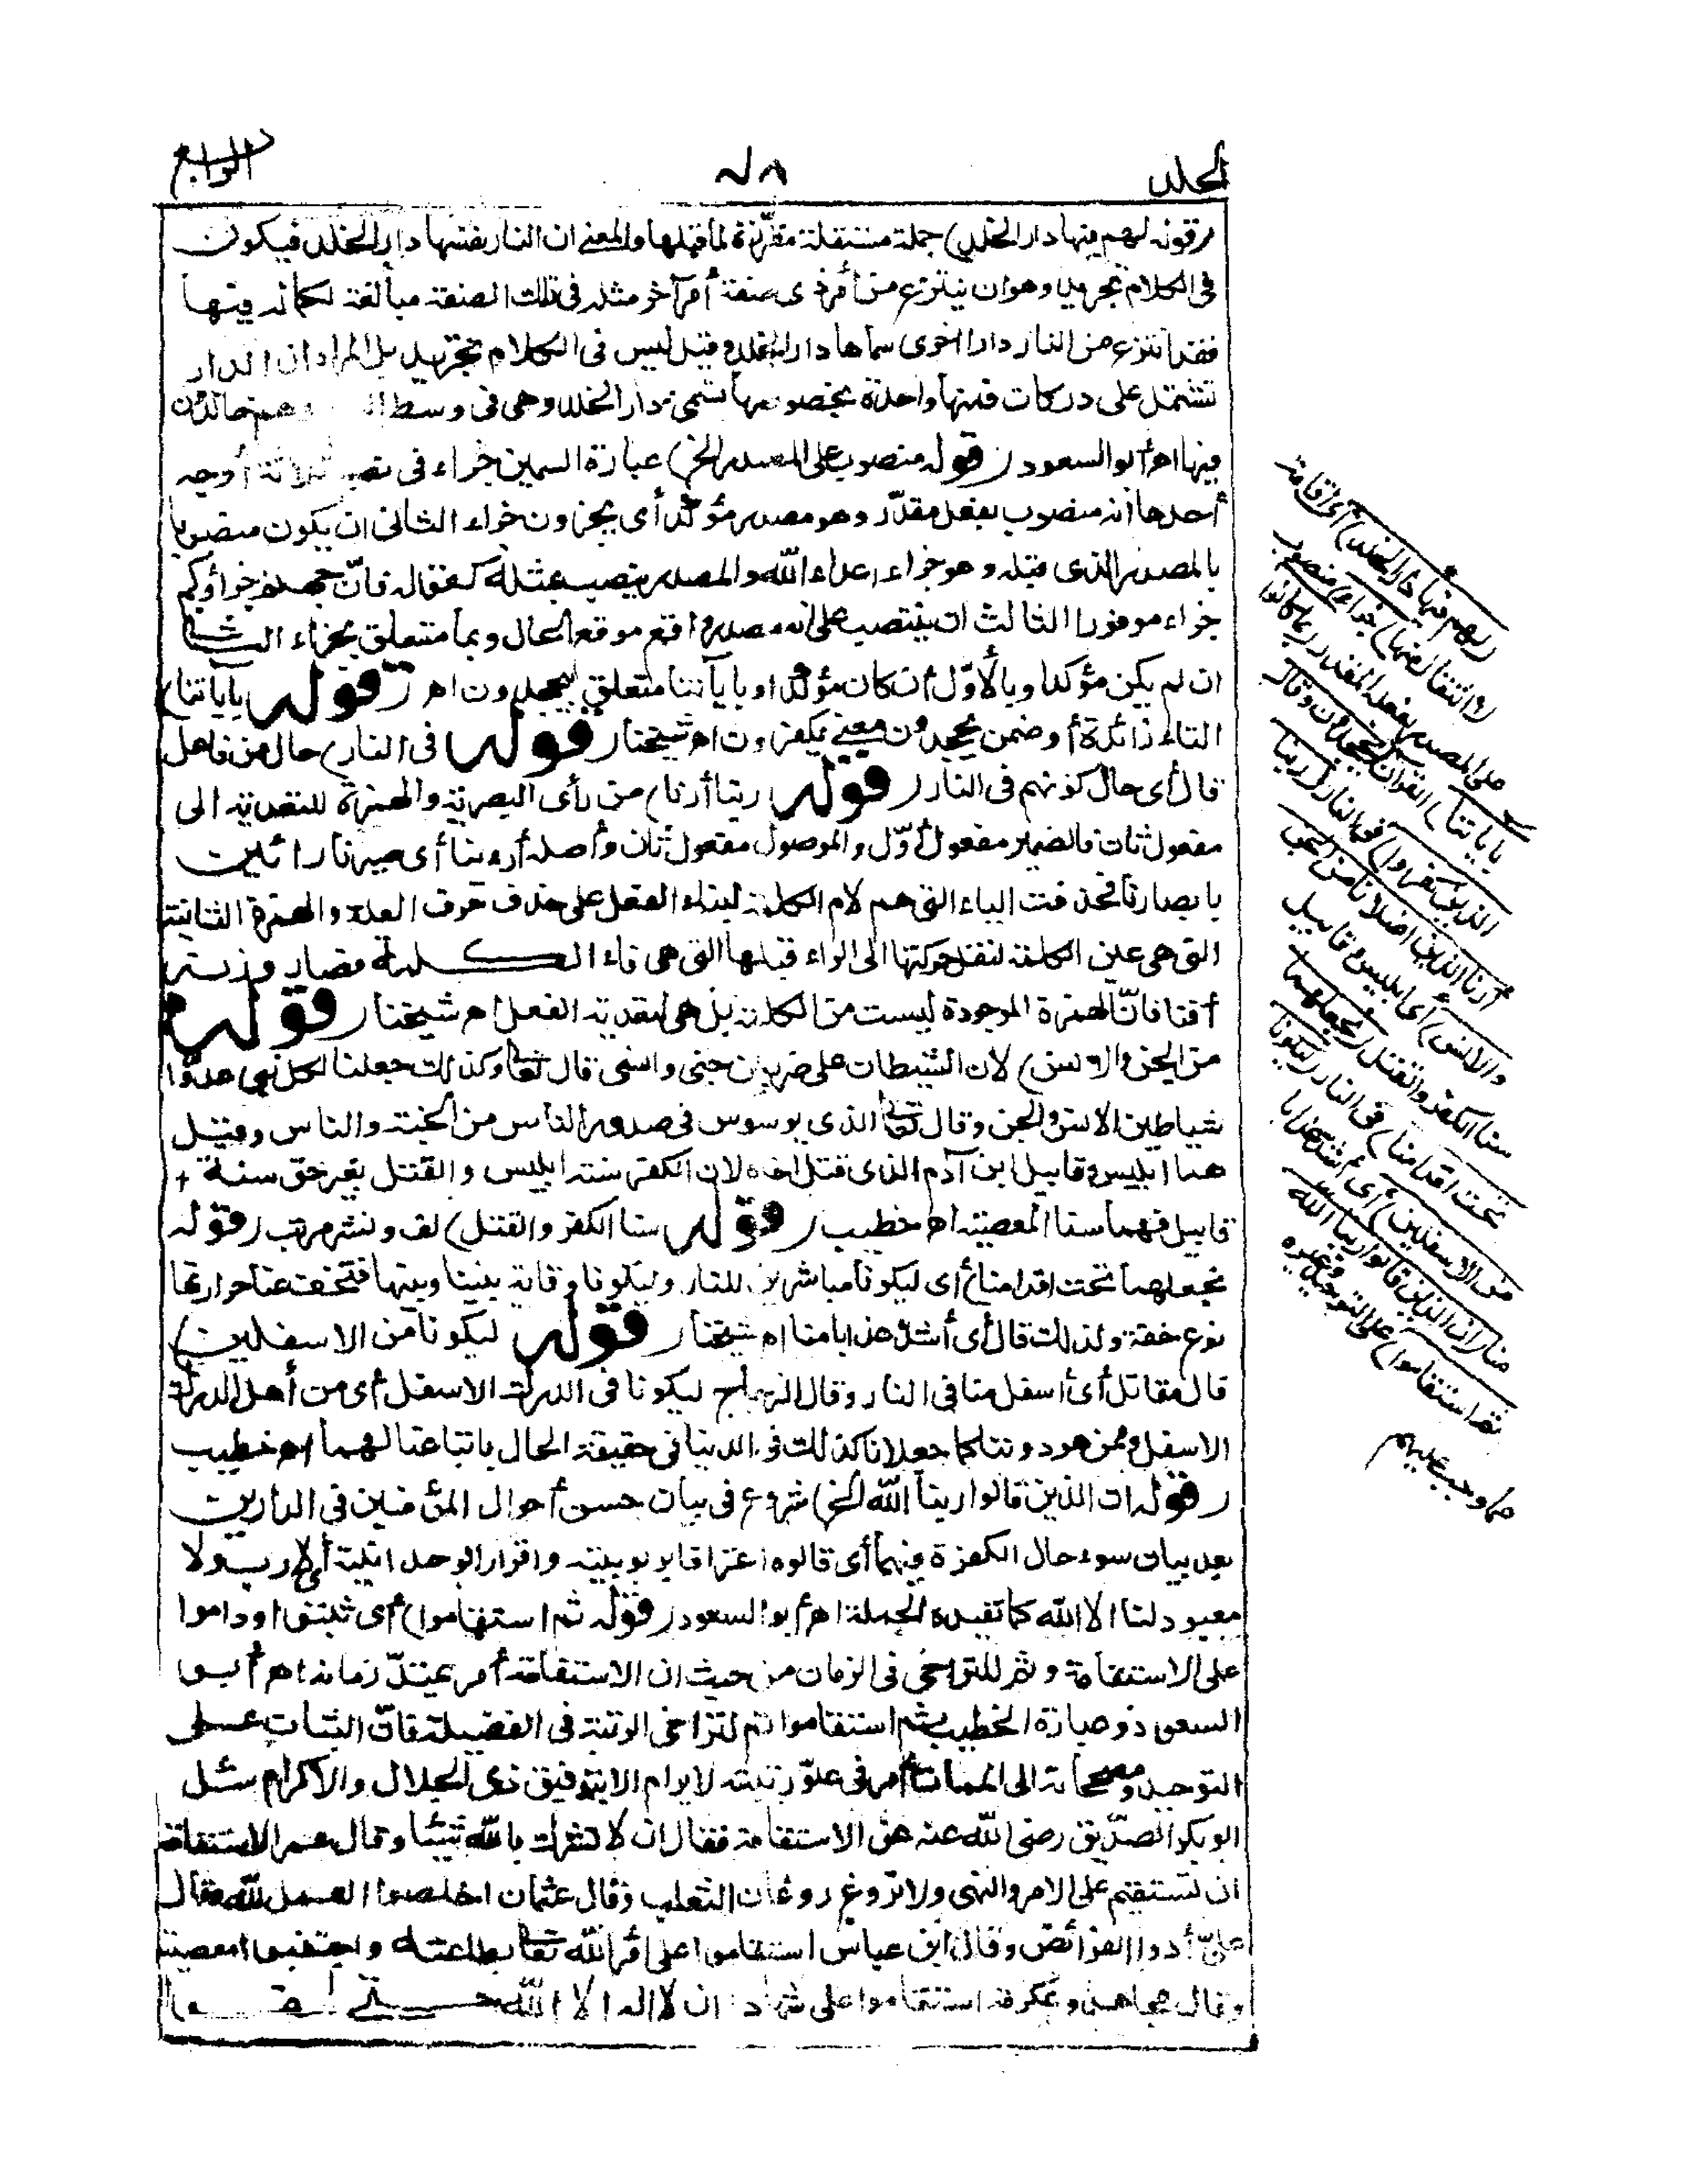 المجلد
٧٨
الرابع
(قوله لهم فيها دار الخلد) جملة مستقلة مقررة لما قبلها والمعنى ان النار نفسها دار الخلد فيكون
فى الكلام تجريد وهو ان ينتزع من أمر ذى صفة أمر آخر مثله فى تلك الصفة مبالغة لكماله فيها
فقد انتزع من النار دارا اخرى سماها دار الخلد وقيل ليس فى الكلام تجريد بل المراد ان الدار
تشتمل على دركات فمنها واحدة بخصوصها تسمى دار الخلد وهى فى وسط وهم خالدون
فيها اهـ أبو السعود (قوله منصوب على المصدر الخ) عبارة السمين جزاء فى نصبه ثلاثة أوجه
أحدها انه منصوب بفعل مقدّر وهو مصدر مؤكد أى يجزون جزاء الثانى ان يكون منصوبا
بالمصدر الذى قبله وهو جزاء اعداء الله والمصدر ينصب بمثله كقوله فانّ جهنم جزاؤكم
جزاء موفورا الثالث ان ينتصب على انه مصدر واقع موقع الحال وبما متعلق بجزاء الثانى
ان لم يكن مؤكدا وبالأوّل أن كان مؤكدا و بآياتنا متعلق بيجحدون اهـ (قوله بآياتنا)
الباء زائدة أو ضمن يجحدون معنى يكفرون اهـ شيخنا (قوله فى النار) حال من فاعل
قال أى حال كونهم فى النار (قوله ربنا أرنا) من رأى البصرية والهمزة للتعدية الى
مفعول ثان فالضمير مفعول أوّل والموصول مفعول ثان وأصله أرءينا أى صيرنا رائين
بابصارنا فحذفت الياء التى هى لام الكلمة لبناء الفعل على حذف حرف العلة والهمزة الثانية
التى هى عين الكلمة لنقل حركتها الى الراء قبلها التى هى فاء الكلمة فصار وزنه
أفنا فانّ الهمزة الموجودة ليست من الكلمة بل هى لتعدية الفعل اهـ شيخنا (قوله
من الجن والانس) لان الشيطان على ضربين جنى وانسى قال تعالى وكذلك جعلنا لكل نبى عدوّا
شياطين الانس والجن وقال تعالى الذى يوسوس فى صدور الناس من الجنة والناس وقيل
هما ابليس وقابيل ابن آدم الذى قتل اخاه لان الكفر سنة ابليس والقتل بغير حق سنة
قابيل فهما سنا المعصية اهـ خطيب (قوله سنا الكفر والقتل) لف ونشر مرتب (قوله
نجعلهما تحت اقدامنا) أى ليكونا مباشرين للنار وليكونا وقاية بيننا وبينها فتخفف عنا حرارتها
نوع خفة ولذلك قال أى أشد عذابا منا اهـ شيخنا (قوله ليكونا من الاسفلين)
قال مقاتل أى أسفل منا فى النار وقال الزجاج ليكونا فى الدرك الاسفل أى من أهل الدرك
الاسفل وممن هو دوننا كما جعلانا كذلك فى الدنيا فى حقيقة الحال باتباعنا لهما اهـ خطيب
(قوله ان الذين قالوا ربنا الله الخ) شروع فى بيان حسن أحوال المؤمنين فى الدارين
بعد بيان سوء حال الكفرة فيهما أى قالوه اعترافا بربوبيته واقرارا بوحدانيته أى لا رب ولا
معبود لنا الا الله كما تفيده الجملة اهـ أبو السعود (قوله ثم استقاموا) أى ثبتوا وداموا
على الاستقامة وثم للتراخى فى الزمان من حيث ان الاستقامة أمر يمتدّ زمانه اهـ أبو
السعود وعبارة الخطيب ثم استقاموا ثم لتراخى الرتبة فى الفضيلة فانّ الثبات على
التوحيد ومصححاته الى الممات أمر فى علوّ رتبته لا يرام الا بتوفيق ذى الجلال والاكرام سئل
ابو بكر الصدّيق رضى الله عنه عن الاستقامة فقال ان لا تشرك بالله شيئا وقال عمر الاستقامة
ان تستقيم على الامر والنهى ولا تروغ روغان الثعلب وقال عثمان اخلصوا العمل لله وقال
علىّ أدوا الفرائض وقال ابن عباس استقاموا على أمر الله تعالى بطاعته واجتنبوا معصيته
وقال مجاهد وعكرمة استقاموا على شهادة ان لا اله الا الله حتى لحقوا
(لهم فيها دار الخلد) أى اقامة
لا انتقال منها (جزاء) منصوب
على المصدر بفعله المقدر (بما كانوا
بآياتنا) القرآن (يجحدون وقال
الذين كفروا) فى النار (ربنا
أرنا الذين اضلانا من الجن
والانس) أى ابليس وقابيل
سنا الكفر والقتل (نجعلهما
تحت اقدامنا) فى النار (ليكونا
من الاسفلين) أى أشد عذابا
منا (ان الذين قالوا ربنا الله
ثم استقاموا) على التوحيد وغيره
مما وجب عليهم